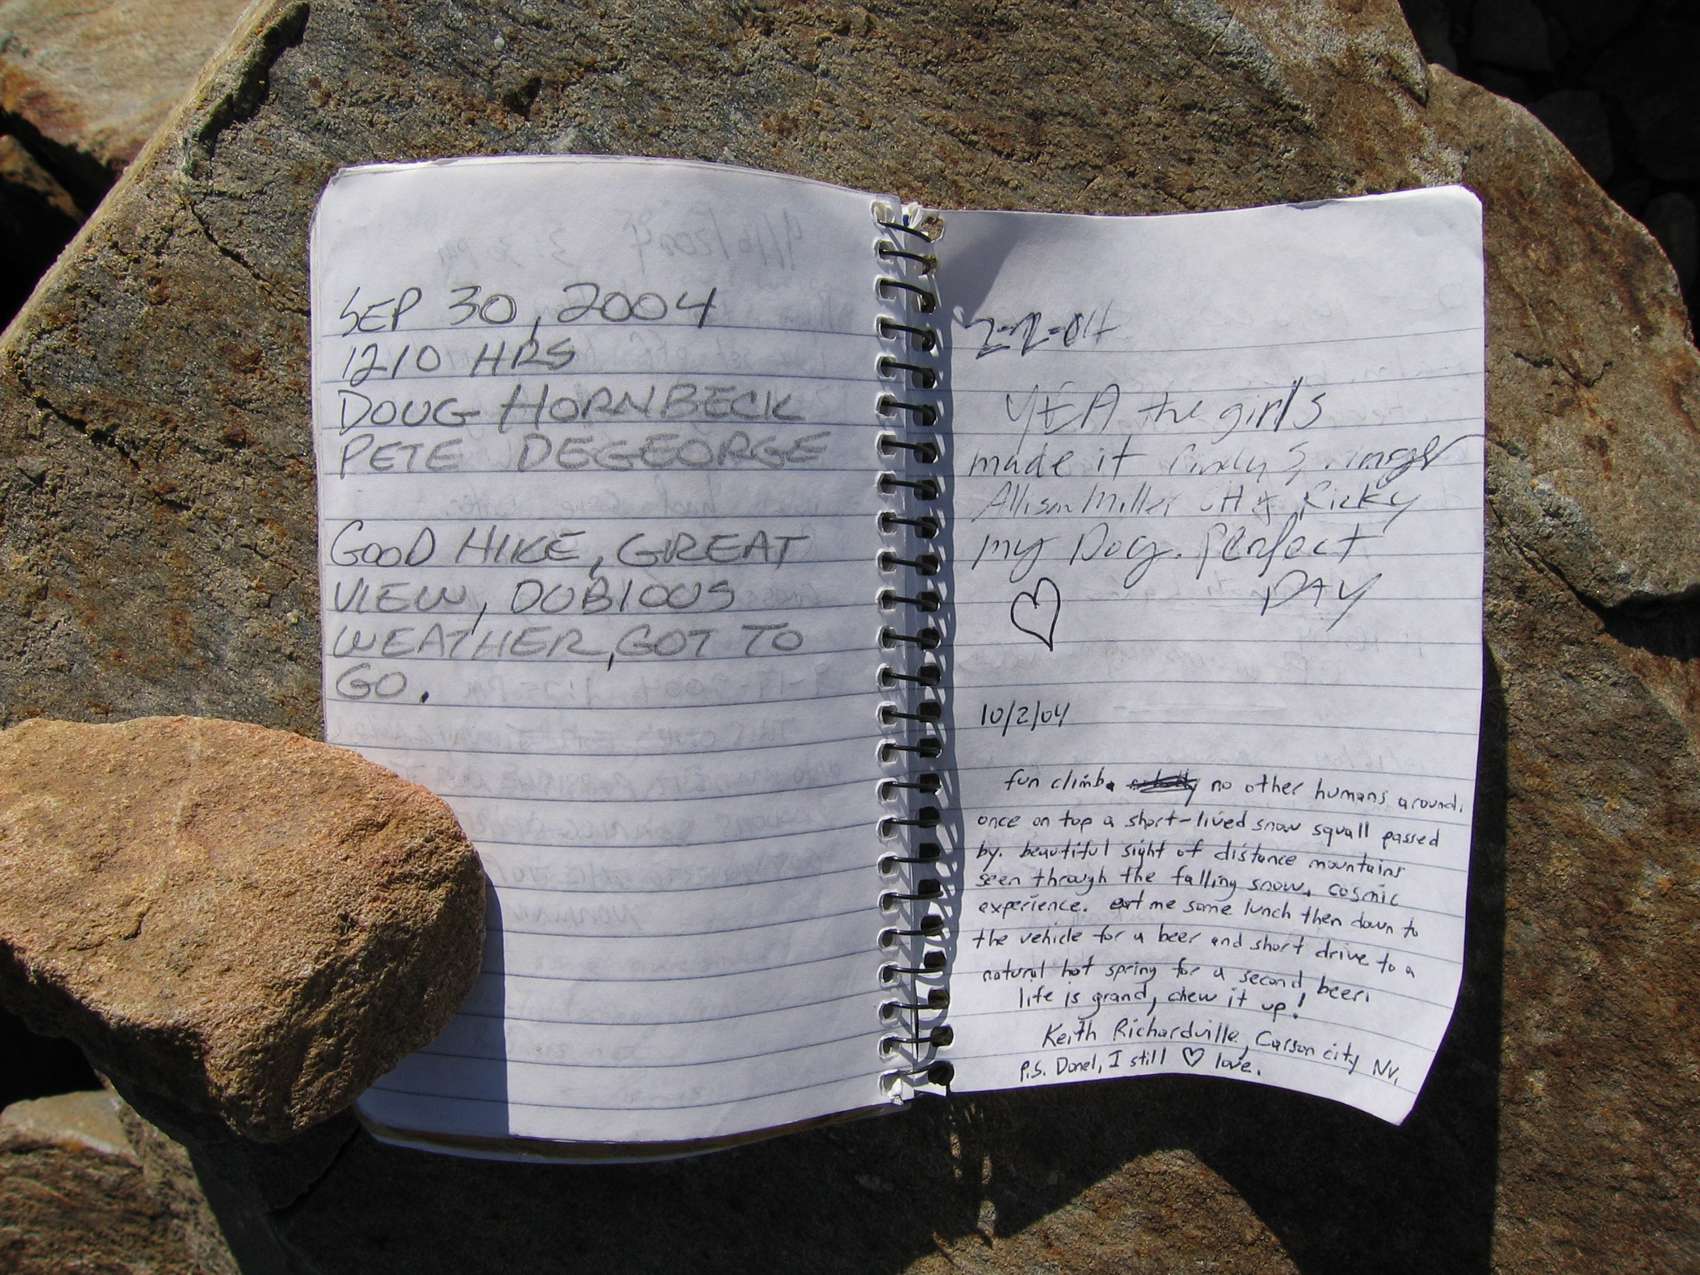 SEP 30, 2004
1210 HRS
DOUG HORNBECK
PETE DEGEORGE
GOOD HIKE, GREAT
VIEW, DUBIOUS
WEATHER, GOT TO
GO.
YEA the girls
made it
Allison Miller Ricky
my Dog. Perfect
DAY
10/2/04
fun climb. no other humans around.
once on top a short-lived snow squall passed
by. beautiful sight of distance mountains
seen through the falling snow, cosmic
experience. eat me some lunch then down to
the vehicle for a beer and short drive to a
natural hot spring for a second beer.
life is grand, chew it up!
Keith Richardville, Carson city Nv.
P.S. Donel, I still ♡ love.